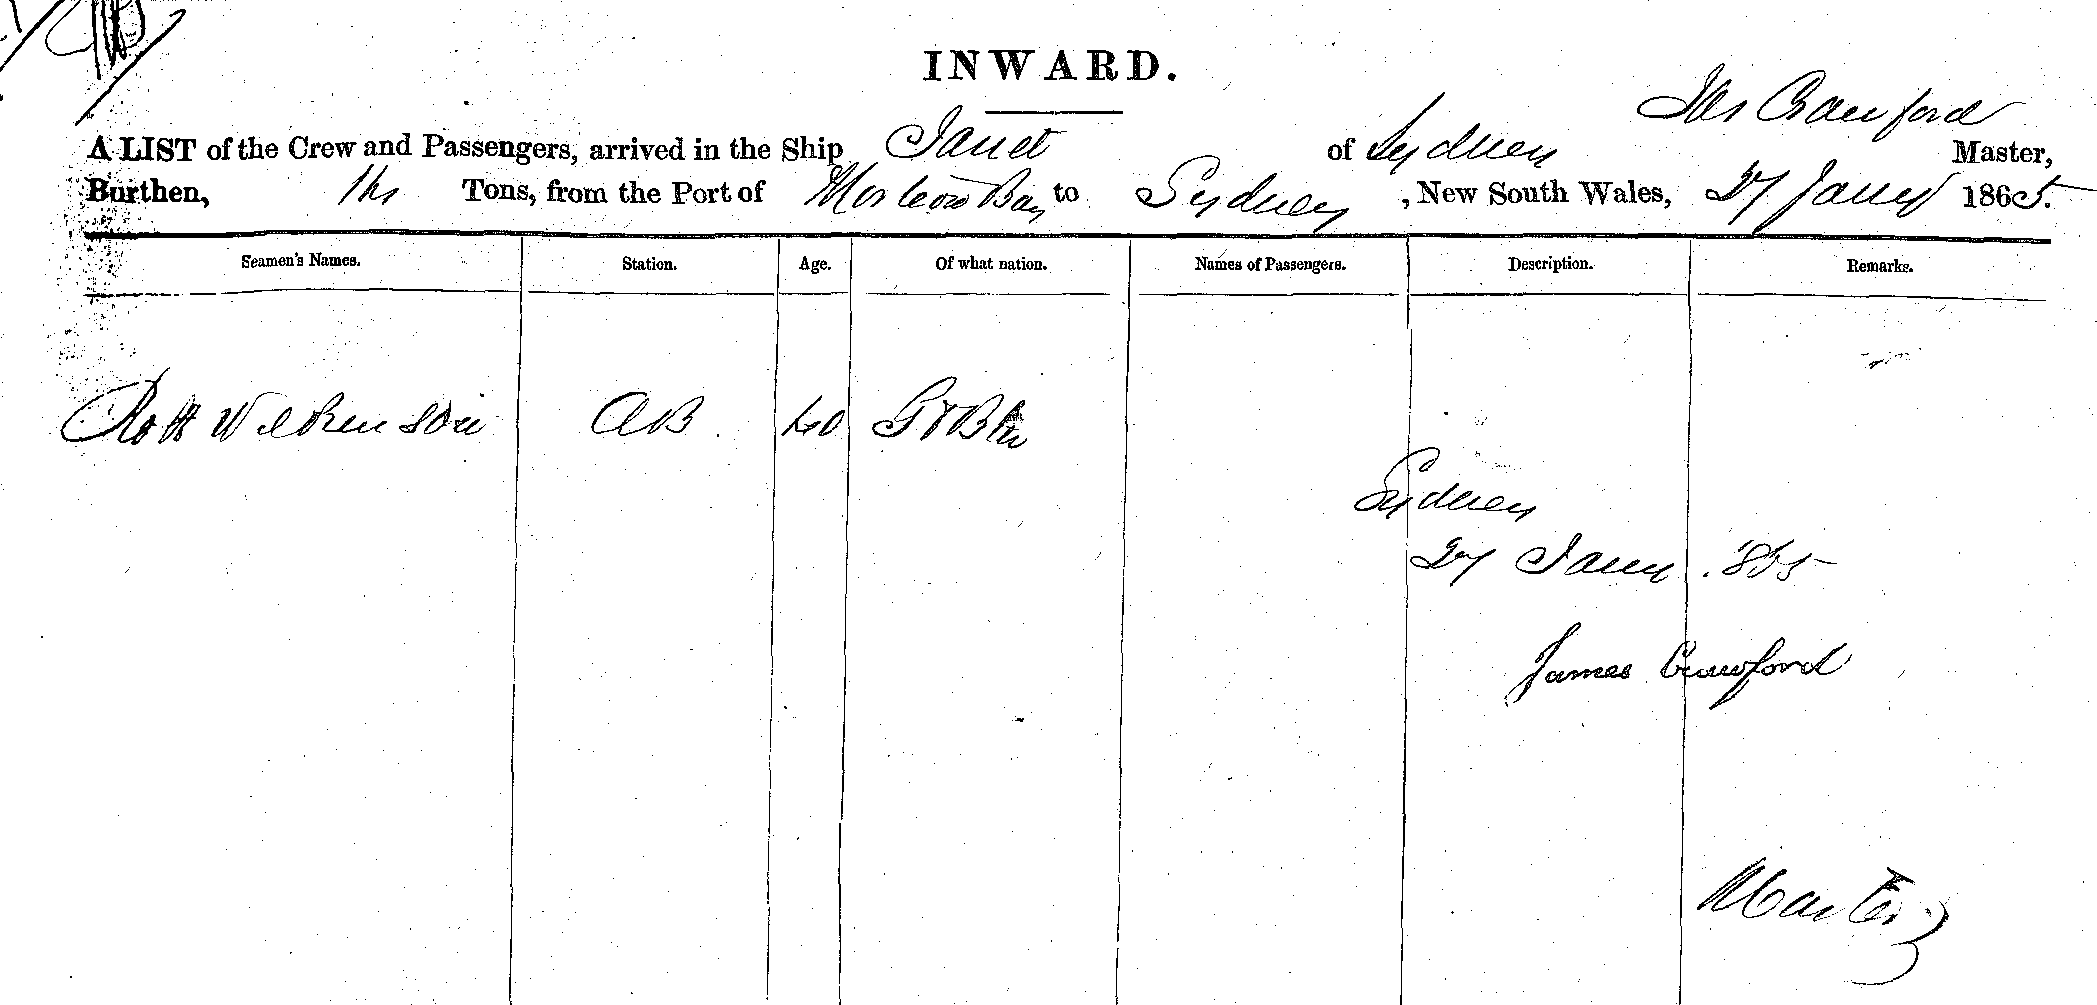 INWARD.
Jas Crawford
A LIST of the Crew and Passengers, arrived in the Ship Janet of Sydney Master,
Burthen, Tons, from the Port of Moreton Bay to Sydney, New South Wales, 27 Jany 1865.
Seamen's Names. Station. Age. Of what nation. Names of Passengers. Description. Remarks.
Robt Wilkenson AB 40 Gt Btn
Sydney
27 Jany 1865
James Crawford
Master